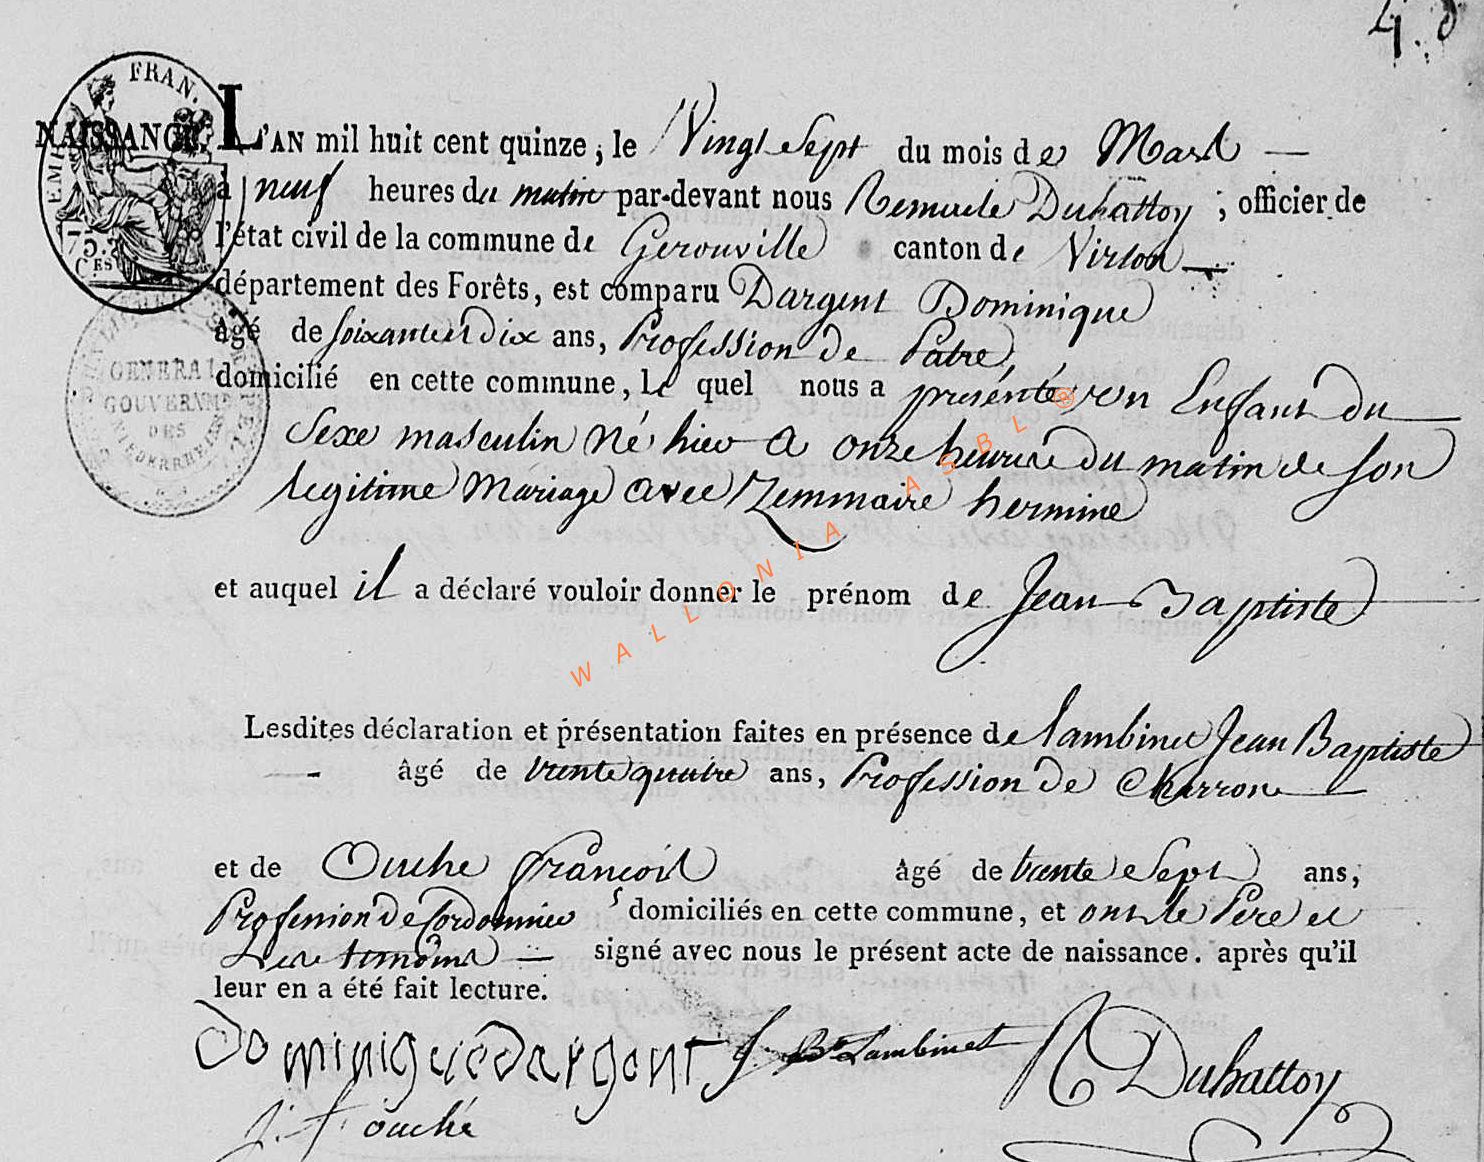 4.8
EMP. FRAN.
75.
Ces
GENERAL
GOUVERNME
DES
NIEDERRHEINS
NAISSANCE.
L'AN mil huit cent quinze, le Vingt Sept du mois de Mars —
à neuf heures du matin par-devant nous Remacle Duhattoy, officier de
l'état civil de la commune de Gerouville canton de Virton —
département des Forêts, est comparu Dargent Dominique
âgé de soixante et Dix ans, Profession de Patre,
domicilié en cette commune, le quel nous a présenté un Enfant du
Sexe masculin né hier a onze heures du matin de son
legitime Mariage avec Zemmaire hermine
et auquel il a déclaré vouloir donner le prénom de Jean Baptiste
Lesdites déclaration et présentation faites en présence de Lambinet Jean Baptiste
— âgé de trente quatre ans, Profession de Charron —
et de Ouche François âgé de trente e Sept ans,
Profession de Cordonnier domiciliés en cette commune, et ont le Père et
Les temoins — signé avec nous le présent acte de naissance. après qu'il
leur en a été fait lecture.
Dominique Dargent J. Bte Lambinet R Duhattoy
j. f. ouché
WALLONIA ASBL ®